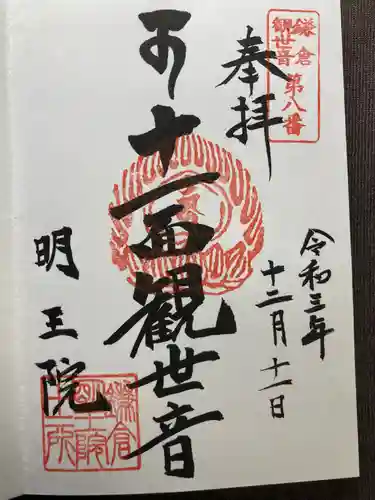 鎌倉
観世音
第八番
奉拝
令和三年
十二月十一日
十一面観世音
明王院